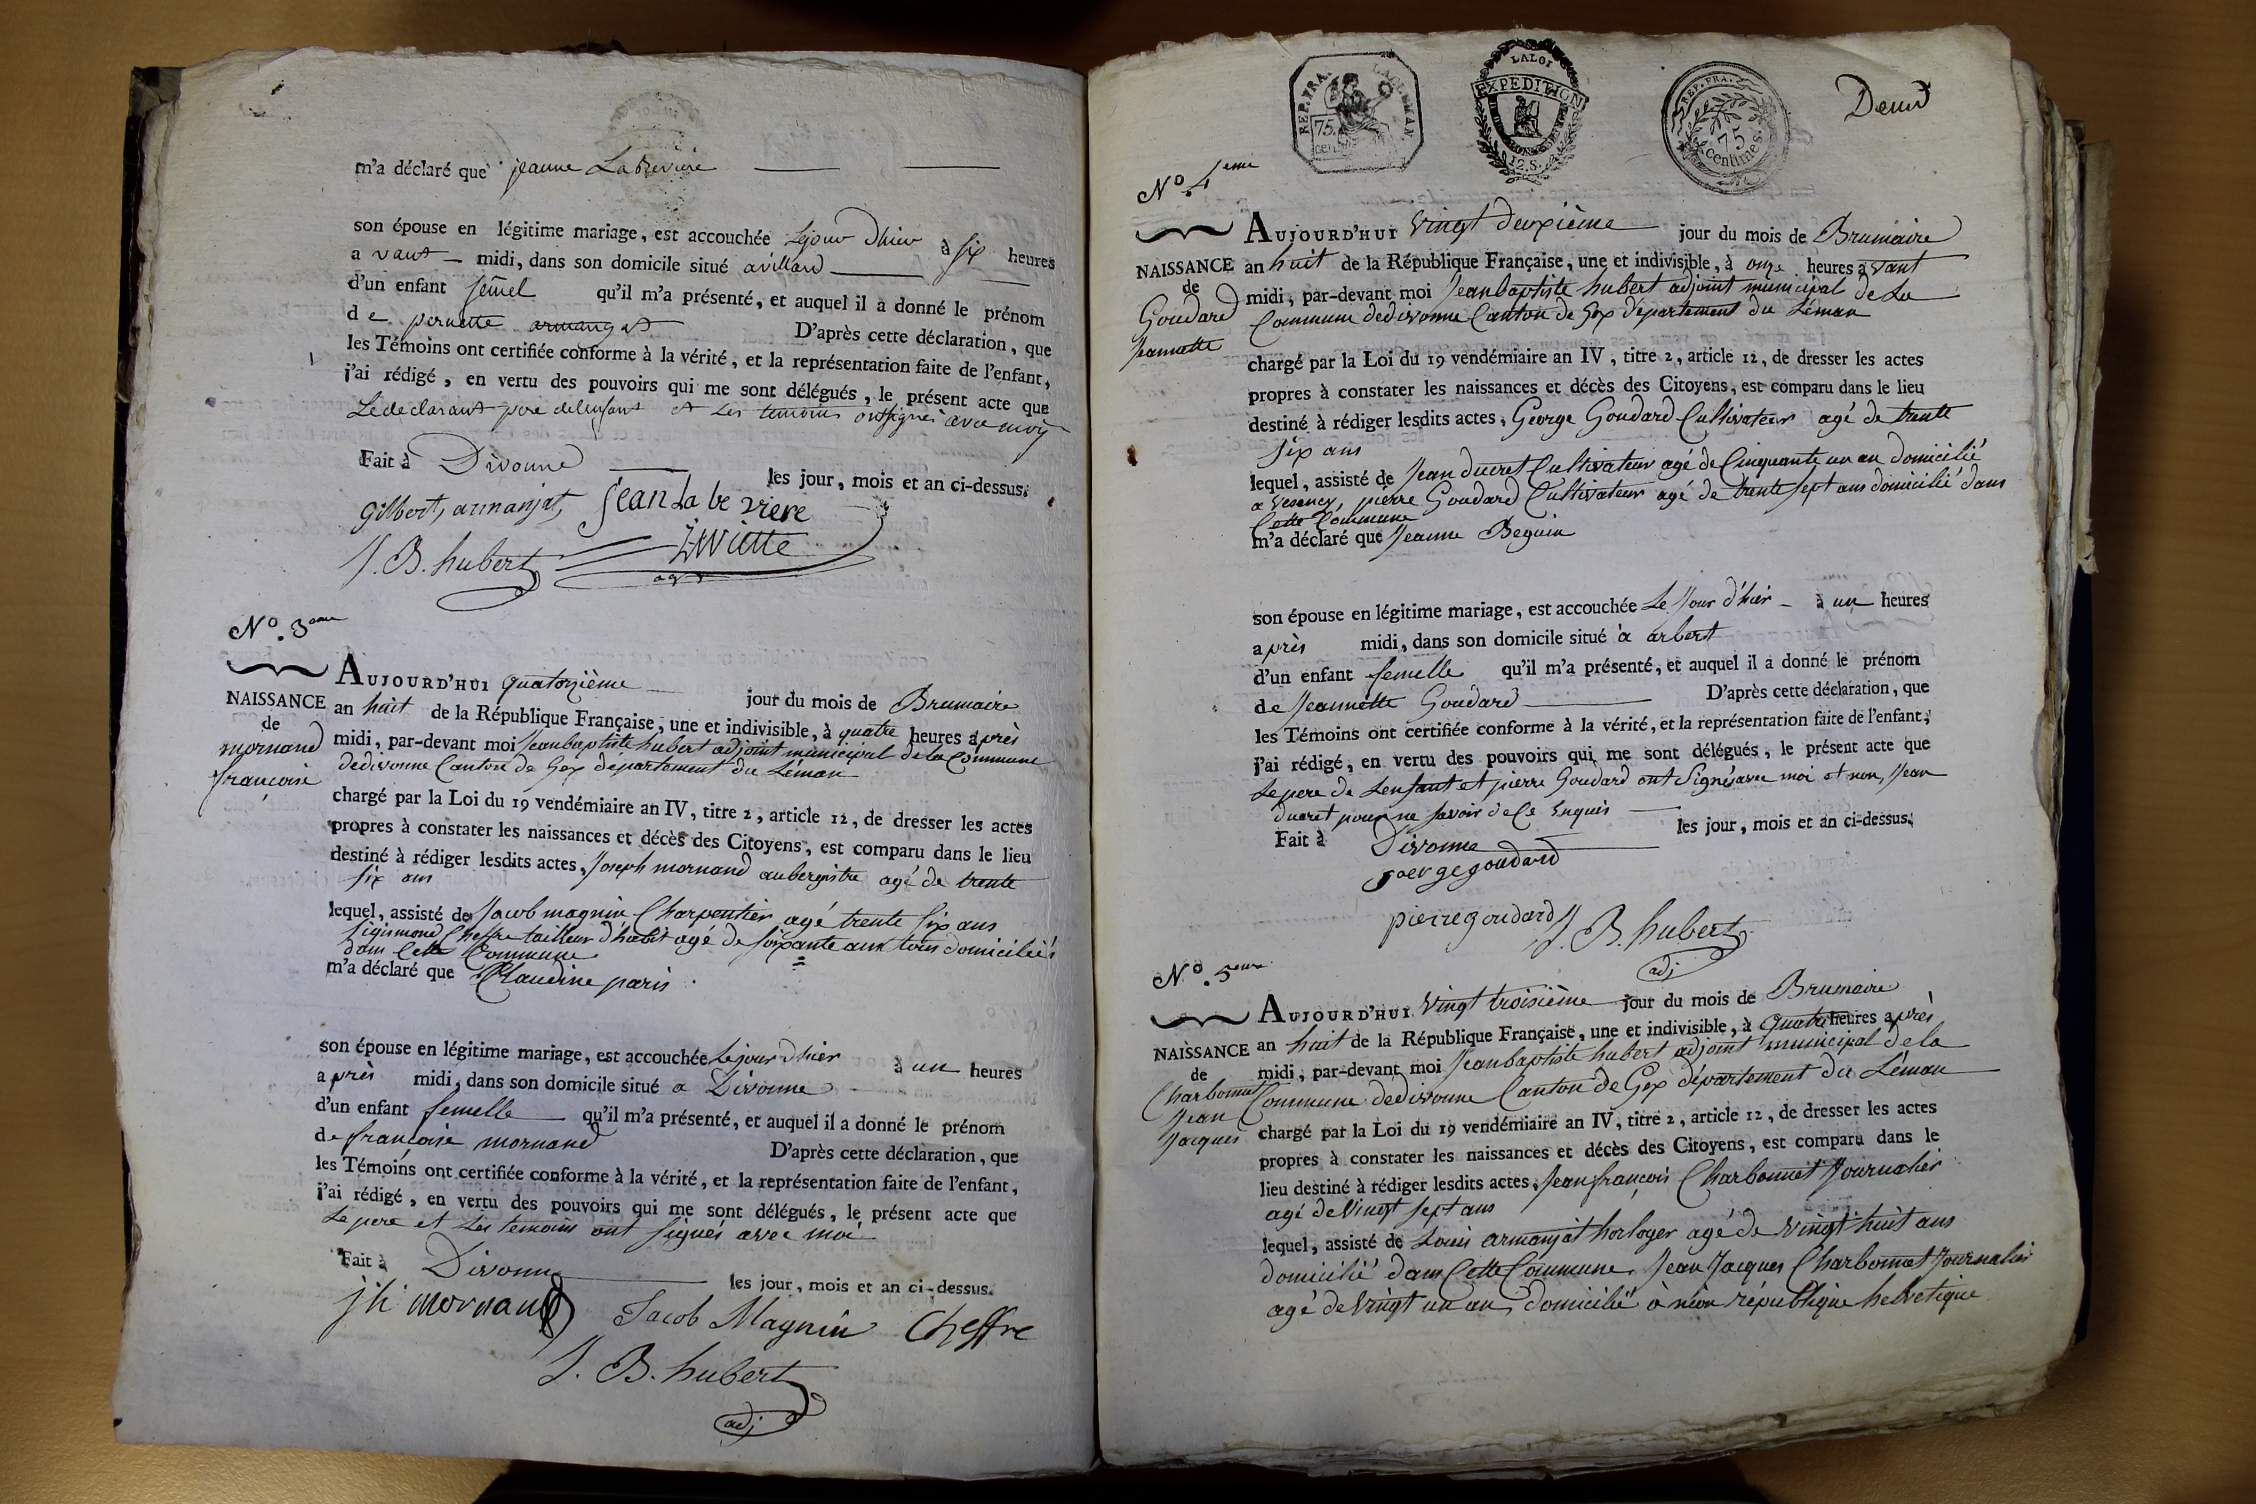 m'a déclaré que jeanne Labeviere
son épouse en légitime mariage, est accouchée Lejour Dhier à six heures
avant midi, dans son domicile situé avillard
d'un enfant femel qu'il m'a présenté, et auquel il a donné le prénom
de pernette armanjat D'après cette déclaration, que
les Témoins ont certifiée conforme à la vérité, et la représentation faite de l'enfant,
j'ai rédigé, en vertu des pouvoirs qui me sont délégués, le présent acte que
Ledeclarant pere delenfant et Les temoins ontsignés avec moy
Fait à Divonne les jour, mois et an ci-dessus.
gilbert, armanjat, jean La be viere
J. B. hubert
No. 3eme
AUJOURD'HUI quatorzième jour du mois de Brumaire
NAISSANCE
de
mornand
françoise
an huit de la République Française, une et indivisible, à quatre heures après
midi, par-devant moi Jeanbaptiste hubert adjoint municipal de la Commune
dedivonne Canton de Gex département du Léman
chargé par la Loi du 19 vendémiaire an IV, titre 2, article 12, de dresser les actes
propres à constater les naissances et décès des Citoyens, est comparu dans le lieu
destiné à rédiger lesdits actes, Joseph mornand aubergiste agé de trente
six ans
lequel, assisté de Jacob magnin Charpentier agé trente six ans
sigismond Cheffre tailleur d'habit agé de soixante ans tous domiciliés
dans Cette Commune
m'a déclaré que Claudine paris
son épouse en légitime mariage, est accouchée Lejour dhier à un heures
après midi, dans son domicile situé a Divonne
d'un enfant femelle qu'il m'a présenté, et auquel il a donné le prénom
de françoise mornand D'après cette déclaration, que
les Témoins ont certifiée conforme à la vérité, et la représentation faite de l'enfant,
j'ai rédigé, en vertu des pouvoirs qui me sont délégués, le présent acte que
Le pere et Les temoins ont signés avec moi
Fait à Divonne les jour, mois et an ci-dessus.
jh mornand Jacob Magnin Cheffre
J. B. hubert
adj
REP. FRA.
75.
LA LOI
EXPEDITION
12.S.
REP. FRA.
75
centimes.
Deux
No. 4eme
AUJOURD'HUI vingt deuxième jour du mois de Brumaire
NAISSANCE
de
Goudard
Jeannette
an huit de la République Française, une et indivisible, à onze heures avant
midi, par-devant moi Jeanbaptiste hubert adjoint municipal de La
Commune dedivonne Canton de Gex département du Léman
chargé par la Loi du 19 vendémiaire an IV, titre 2, article 12, de dresser les actes
propres à constater les naissances et décès des Citoyens, est comparu dans le lieu
destiné à rédiger lesdits actes, George Goudard Cultivateur agé de trente
six ans
lequel, assisté de Jean ducret Cultivateur agé de Cinquante un an domicilié
a vesancy, pierre Goudard Cultivateur agé de trente sept ans domicilié dans
Cette Commune
m'a déclaré que Jeanne Beguin
son épouse en légitime mariage, est accouchée Le Jour d'hier à un heures
après midi, dans son domicile situé à arbert
d'un enfant femelle qu'il m'a présenté, et auquel il a donné le prénom
de Jeannette Goudard D'après cette déclaration, que
les Témoins ont certifiée conforme à la vérité, et la représentation faite de l'enfant,
j'ai rédigé, en vertu des pouvoirs qui me sont délégués, le présent acte que
Le pere de Lenfant et pierre Goudard ont signés avec moi et non Jean
ducret pour ne savoir de Ce Enquis
Fait à Divonne les jour, mois et an ci-dessus.
george goudard
pierre goudard J. B. hubert
adj
No. 5eme
AUJOURD'HUI vingt troisième jour du mois de Brumaire
NAISSANCE
de
Charbonnet
Jean
Jacques
an huit de la République Française, une et indivisible, à quatre heures après
midi, par-devant moi Jeanbaptiste hubert adjoint municipal de la
Commune dedivonne Canton de Gex département du Léman
chargé par la Loi du 19 vendémiaire an IV, titre 2, article 12, de dresser les actes
propres à constater les naissances et décès des Citoyens, est comparu dans le
lieu destiné à rédiger lesdits actes, Jeanfrançois Charbonnet Journalier
agé de vingt sept ans
lequel, assisté de Louis armanjat horloger agé de vingt huit ans
domicilié dans Cette Commune, Jean Jacques Charbonnet Journalier
agé de vingt un an domicilié à nion république helvetique